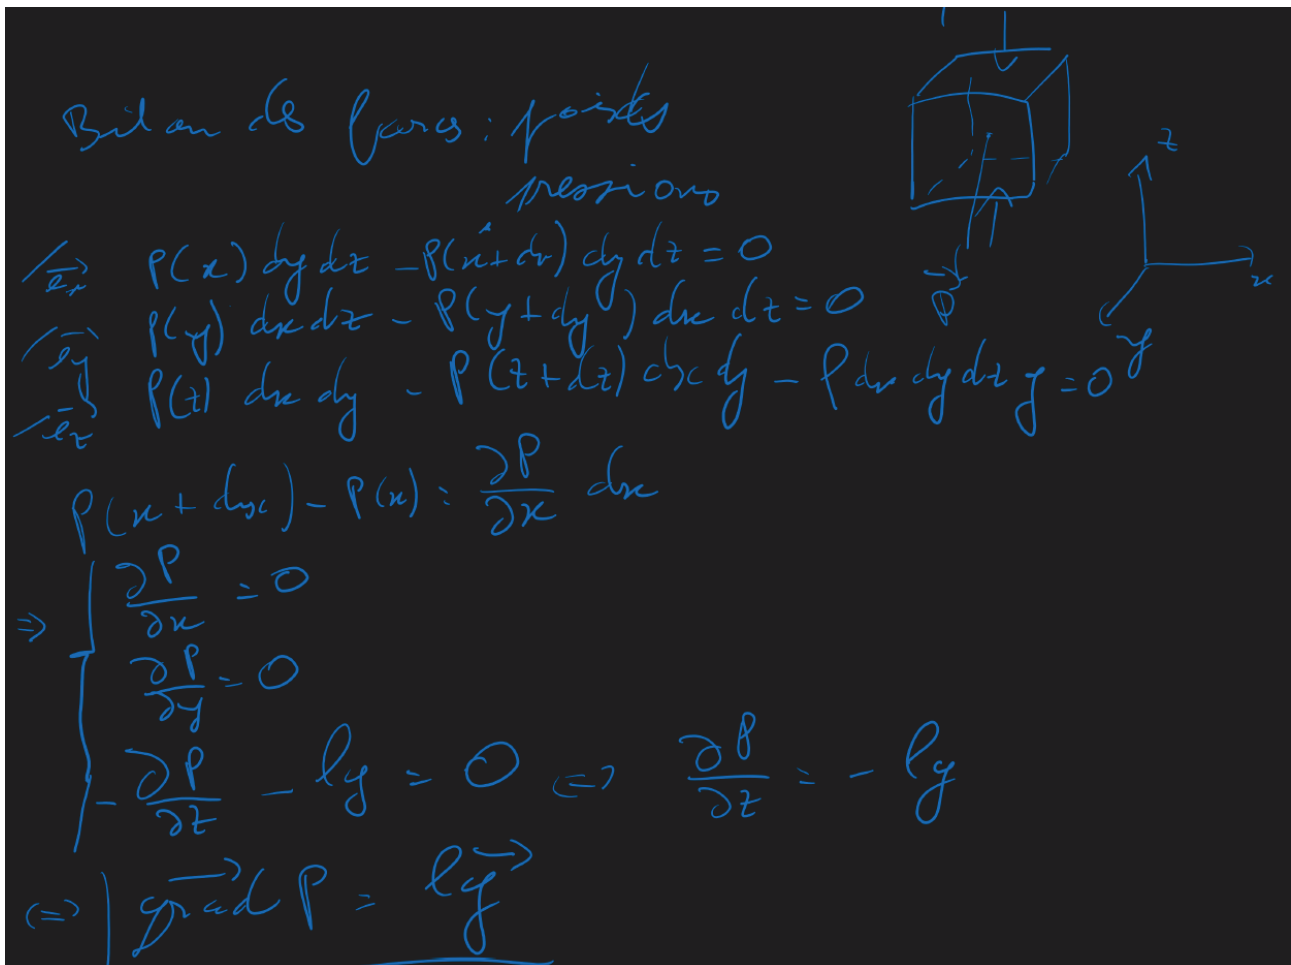 Bilan des forces : poids
pressions
/e⃗x P(x) dy dz - P(x+dx) dy dz = 0
/e⃗y P(y) dx dz - P(y+dy) dx dz = 0
/e⃗z P(z) dx dy - P(z+dz) dx dy - ρ dx dy dz g = 0
P(x+dx) - P(x) = ∂P/∂x dx
⇒ ∂P/∂x = 0
∂P/∂y = 0
-∂P/∂z - ρg = 0 ⇔ ∂P/∂z = -ρg
⇔ grad⃗ P = ρg⃗
P⃗
z
x
y